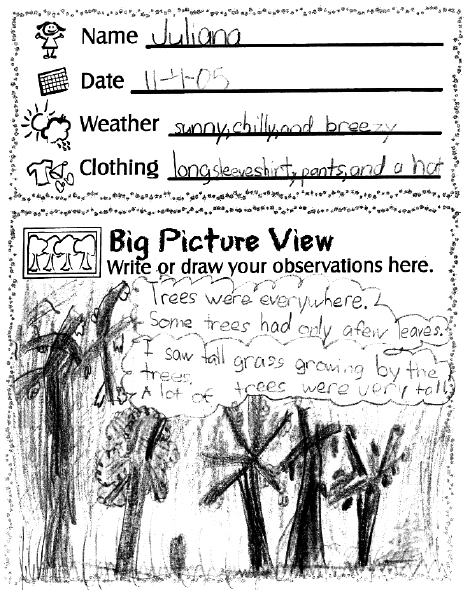 Name Juliana
Date 11-1-05
Weather sunny, chilly, and breezy
Clothing long sleeve shirt, pants, and a hat
Big Picture View
Write or draw your observations here.
Trees were everywhere.
Some trees had only a few leaves.
I saw tall grass growing by the
trees.
A lot of trees were very tall